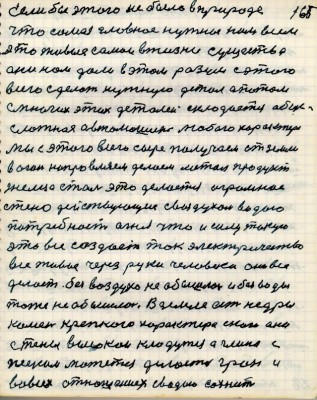 Если бы этого не было в природе 168
что самая главное нужная нам всем
это живые самои в жизни существа
они нам дали в этом разум с этого
всего сделат нужную детал а потом
с многих этих деталей складается
сложная автомашина любого характера
мы с этого всего сыре получаем от земли
в огон направляем делаем метал продукт
железа стал это делается огромное
действующие с воздухом водою
потребност огня что и силу такую
это все создает ток электричество
все живые через руки человека он все
делает без воздуха не обошлос и без воды
тоже не обошлос. В земле ест недры
камен крепкого характера с него
стены высокой кладутся а глина с
песком мажется делаются и
во всех отношениях с водою